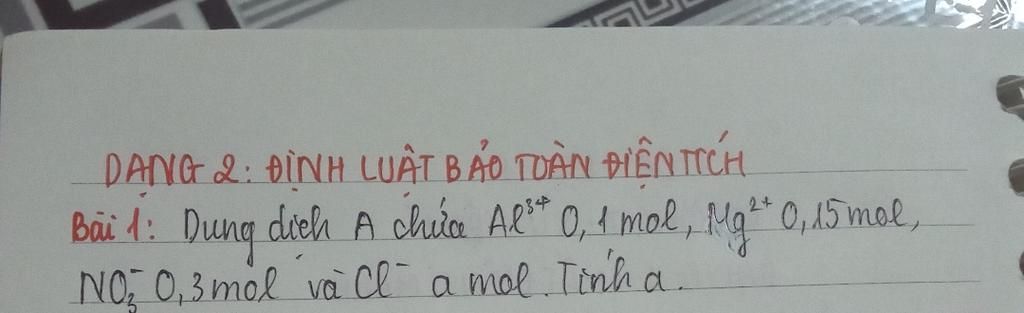 DẠNG 2: ĐỊNH LUẬT BẢO TOÀN ĐIỆN TÍCH
Bài 1: Dung dịch A chứa Al³⁺ 0,1 mol, Mg²⁺ 0,15 mol,
NO₃⁻ 0,3 mol và Cl⁻ a mol. Tính a.